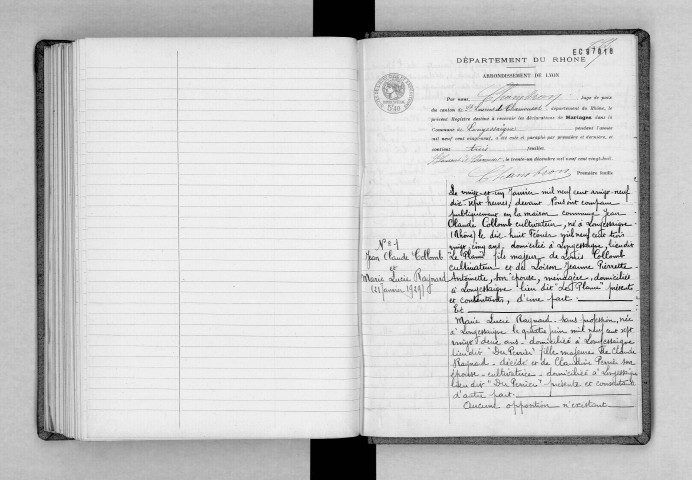 EC97018
DÉPARTEMENT DU RHÔNE
ARRONDISSEMENT DE LYON
Par nous, Chambron, Juge de paix
du canton de St Laurent de Chamousset, département du Rhône, le
présent Registre destiné à recevoir les déclarations de Mariages dans la
Commune de Longessaigne pendant l'année
mil neuf cent vingt neuf, a été coté et paraphé par première et dernière, et
contient trois feuilles.
le trente-un décembre mil neuf cent vingt-huit.
Chambron Première feuille
N° 1
Jean Claude Collomb
et
Marie Lucie Raynard
(21 Janvier 1929)
Le vingt-et-un Janvier mil neuf cent vingt-neuf
dix-sept heures, devant Nous ont comparu
publiquement en la maison commune Jean
Claude Collomb cultivateur, né à Longessaigne
(Rhône) le dix-huit Février mil neuf cent
vingt cinq ans, domicilié à Longessaigne, lieu dit
"Le Plann" fils majeur de Louis Collomb
cultivateur et de Loison Jeanne Pierrette
Antoinette, son épouse, ménagère, domiciliés
à Longessaigne lieu dit "Le Plann" présents
et consentants, d'une part.
Et
Marie Lucie Raynard sans profession, née
à Longessaigne le quatre juin mil neuf cent sept
vingt deux ans - domiciliée à Longessaigne
lieu dit "Du Perrier" fille majeure de Claude
Raynard - décédé et de Claudine Perrier son
épouse - cultivatrice - domiciliée à Longessaigne
lieu dit "Du Perrier" présente et consentante
d'autre part.
Aucune opposition n'existant